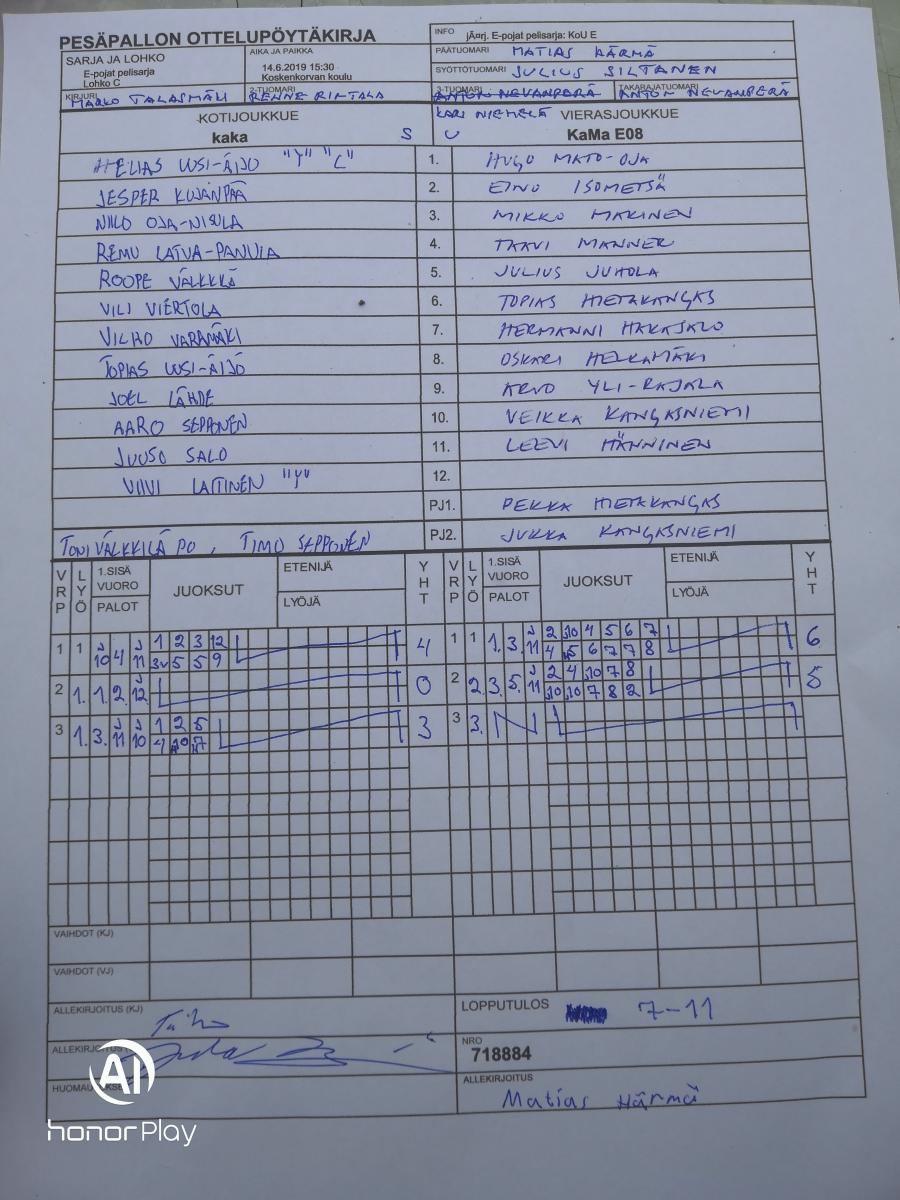 PESÄPALLON OTTELUPÖYTÄKIRJA
INFO jÃ¤rj. E-pojat pelisarja: KoU E
SARJA JA LOHKO
E-pojat pelisarja
Lohko C
AIKA JA PAIKKA
14.6.2019 15:30
Koskenkorvan koulu
PÄÄTUOMARI MATIAS HÄRMÄ
SYÖTTÖTUOMARI JULIUS SILTANEN
KIRJURI MARKO TALASMÄKI
2-TUOMARI RENNE RINTALA
3-TUOMARI ANTON NEVANPERÄ
TAKARAJATUOMARI ANTON NEVANPERÄ
KARI NIEMELÄ
KOTIJOUKKUE
kaka S
U VIERASJOUKKUE
KaMa E08
HELIAS UUSI-ÄIJÖ "Y" "C" 1. HUGO MATO-OJA
JESPER KUJANPÄÄ 2. EINO ISOMETSÄ
NIILO OJA-NISULA 3. MIKKO MAKINEN
REMU LATVA-PANULA 4. TAAVI MANNER
ROOPE 5. JULIUS JUHOLA
VILI VIERTOLA 6. TOPIAS HIETAKANGAS
VILHO VARAMÄKI 7. HERMANNI HAKASALO
TOPIAS UUSI-ÄIJÖ 8. OSKARI HELKAMÄKI
JOEL LÄHDE 9. ARVO YLI-RAJALA
AARO SEPPONEN 10. VEIKKA KANGASNIEMI
JUUSO SALO 11. LEEVI HÄNNINEN
VIIVI LAITINEN "Y" 12.
PJ1. PEKKA HIETAKANGAS
TONI VÄLKKILÄ PO, TIMO SEPPONEN PJ2. JUKKA KANGASNIEMI
VRP LYÖ 1.SISÄ VUORO PALOT JUOKSUT ETENIJÄ LYÖJÄ YHT VRP LYÖ 1.SISÄ VUORO PALOT JUOKSUT ETENIJÄ LYÖJÄ YHT
1 1 J10 4 J11 1 2 3 12 4 1 1 1. 3. J11 2 10 4 5 6 7 6
5 5 9 4 5 6 7 7 8
2 1. 1. 2. J12 0 2 2. 3. 5. J11 2 4 10 7 8 5
10 10 7 8 2
3 1. 3. J11 J10 1 2 5 3 3 3.
4 10 7
VAIHDOT (KJ)
VAIHDOT (VJ)
ALLEKIRJOITUS (KJ)
LOPPUTULOS 7-11
NRO
718884
HUOMAUTUKSET
ALLEKIRJOITUS
Matias Härmä
AI
honor Play